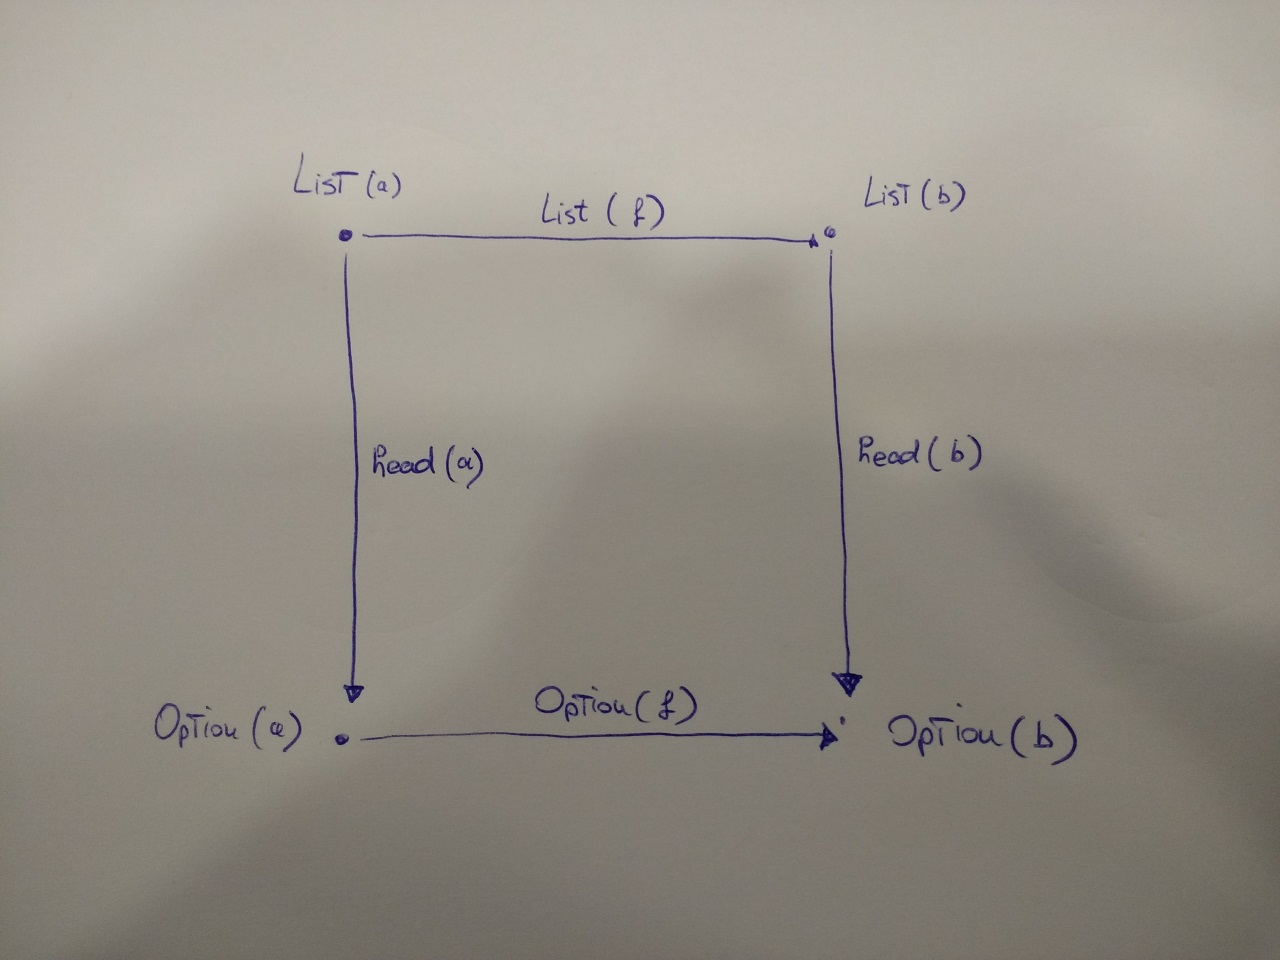 List(a)
List(f)
List(b)
head(a)
head(b)
Option(a)
Option(f)
Option(b)